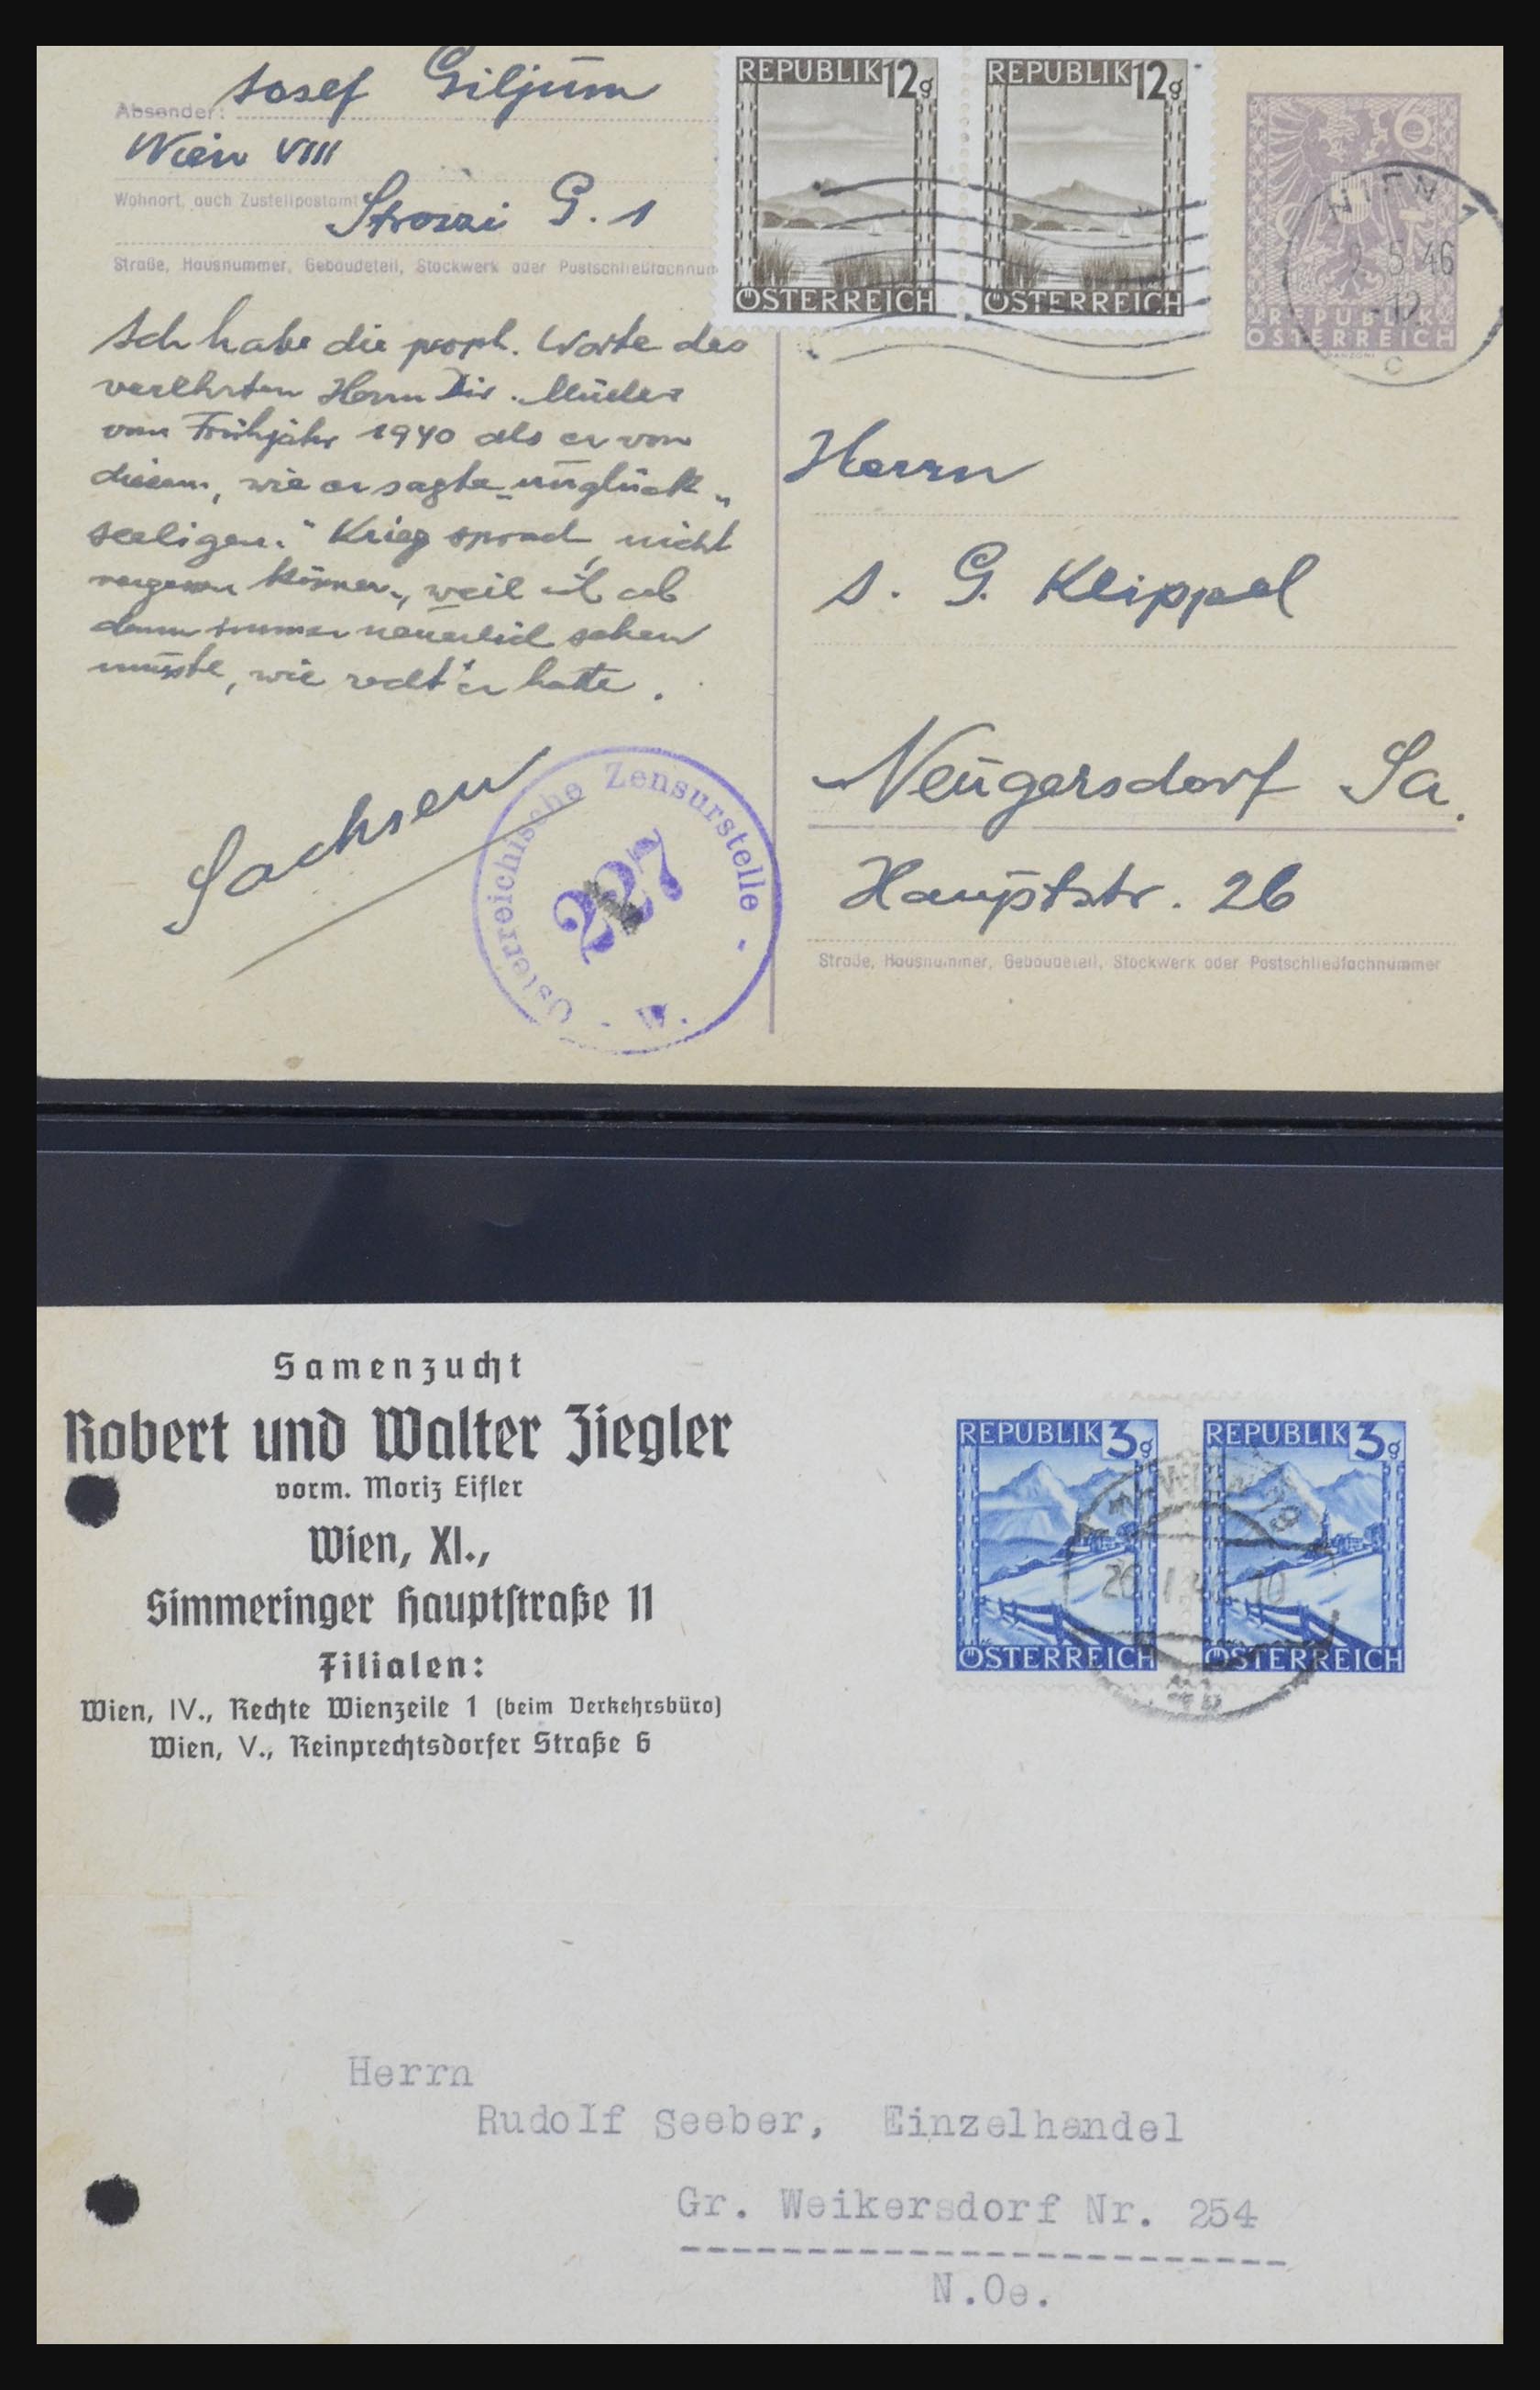 Absender: Josef Giljum
Wien VIII
Wohnort, auch Zustellpostamt
Strozzi G. 1
Straße, Hausnummer, Gebäudeteil, Stockwerk oder Postschließfachnum
REPUBLIK 12g
ÖSTERREICH
REPUBLIK 12g
ÖSTERREICH
6
REPUBLIK
ÖSTERREICH
WIEN 1
5 46
12
c
Ich habe die proph. Worte des
verehrten Herrn Dir. Müller
vom Frühjahr 1940 als er von
diesem, wie er sagte "unglück
seeligen." Krieg sprach, nicht
vergessen können, weil ich
dann immer neuerlich sehen
musste, wie recht er hatte.
Sachsen
Österreichische Zensurstelle
227
W.
Herrn
J. G. Klippel
Neugersdorf Sa.
Hauptstr. 26
Straße, Hausnummer, Gebäudeteil, Stockwerk oder Postschließfachnummer
Samenzucht
Robert und Walter Ziegler
vorm. Moriz Eifler
Wien, XI.,
Simmeringer Hauptstraße 11
Filialen:
Wien, IV., Rechte Wienzeile 1 (beim Verkehrsbüro)
Wien, V., Reinprechtsdorfer Straße 6
REPUBLIK 3g
ÖSTERREICH
REPUBLIK 3g
ÖSTERREICH
Herrn
Rudolf Seeber, Einzelhandel
Gr. Weikersdorf Nr. 254
N.Oe.